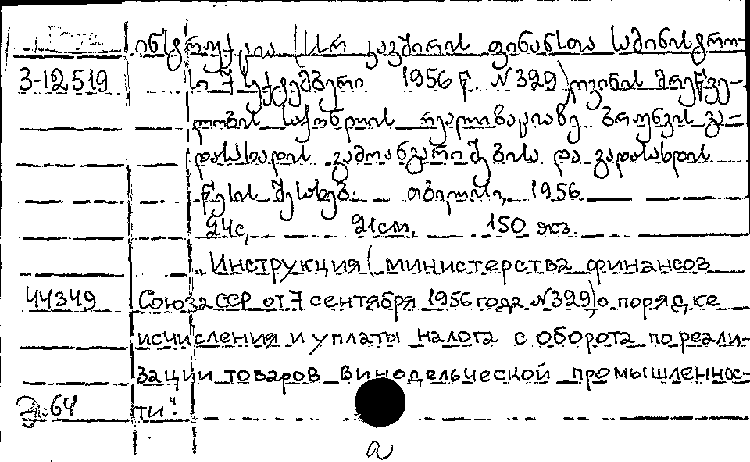 ინსტრუქცია (სსრ კავშირის ფინანსთა სამინისტრო-
3-12519 ს 7 სექტემბერი 1956 წ. N 329) ღვინის მრეწვე-
ლობის საქონლის რეალიზაციაზე ბრუნვის გა-
დასახადის გამოანგარიშებისა და გადახდის
წესის შესახებ. თბილისი, 1956.
24с, 21см, 150 экз.
„Инструкция (министерства финансов
44349 Союза ССР от 7 сентября 1956 года N 329) о порядке
исчисления и уплаты налога с оборота по реали-
зации товаров винодельческой промышленнос-
ти“.